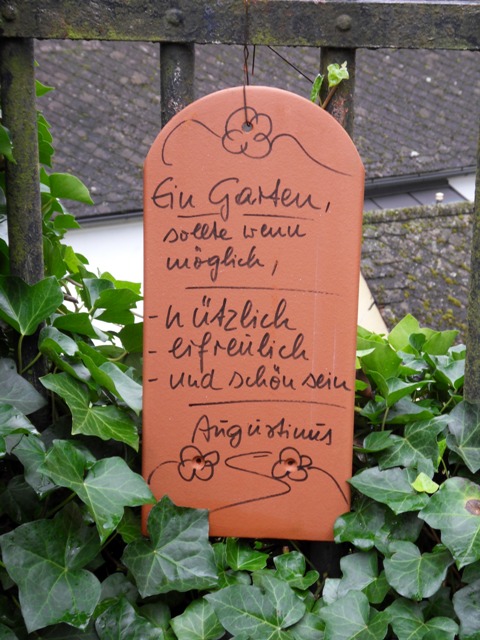 Ein Garten,
sollte wenn
möglich,
- nützlich
- erfreulich
- und schön sein
Augustinus